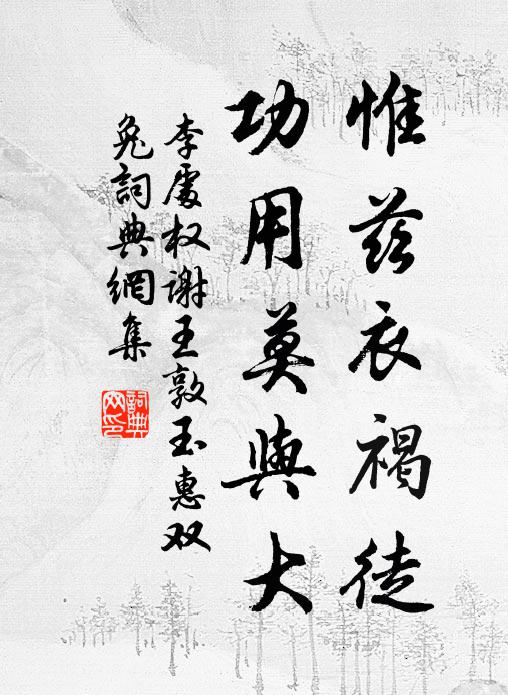 惟茲衣褐徒
功用莫與大
李處权謝王敦玉惠双
兔詞典網集
詞典
网印